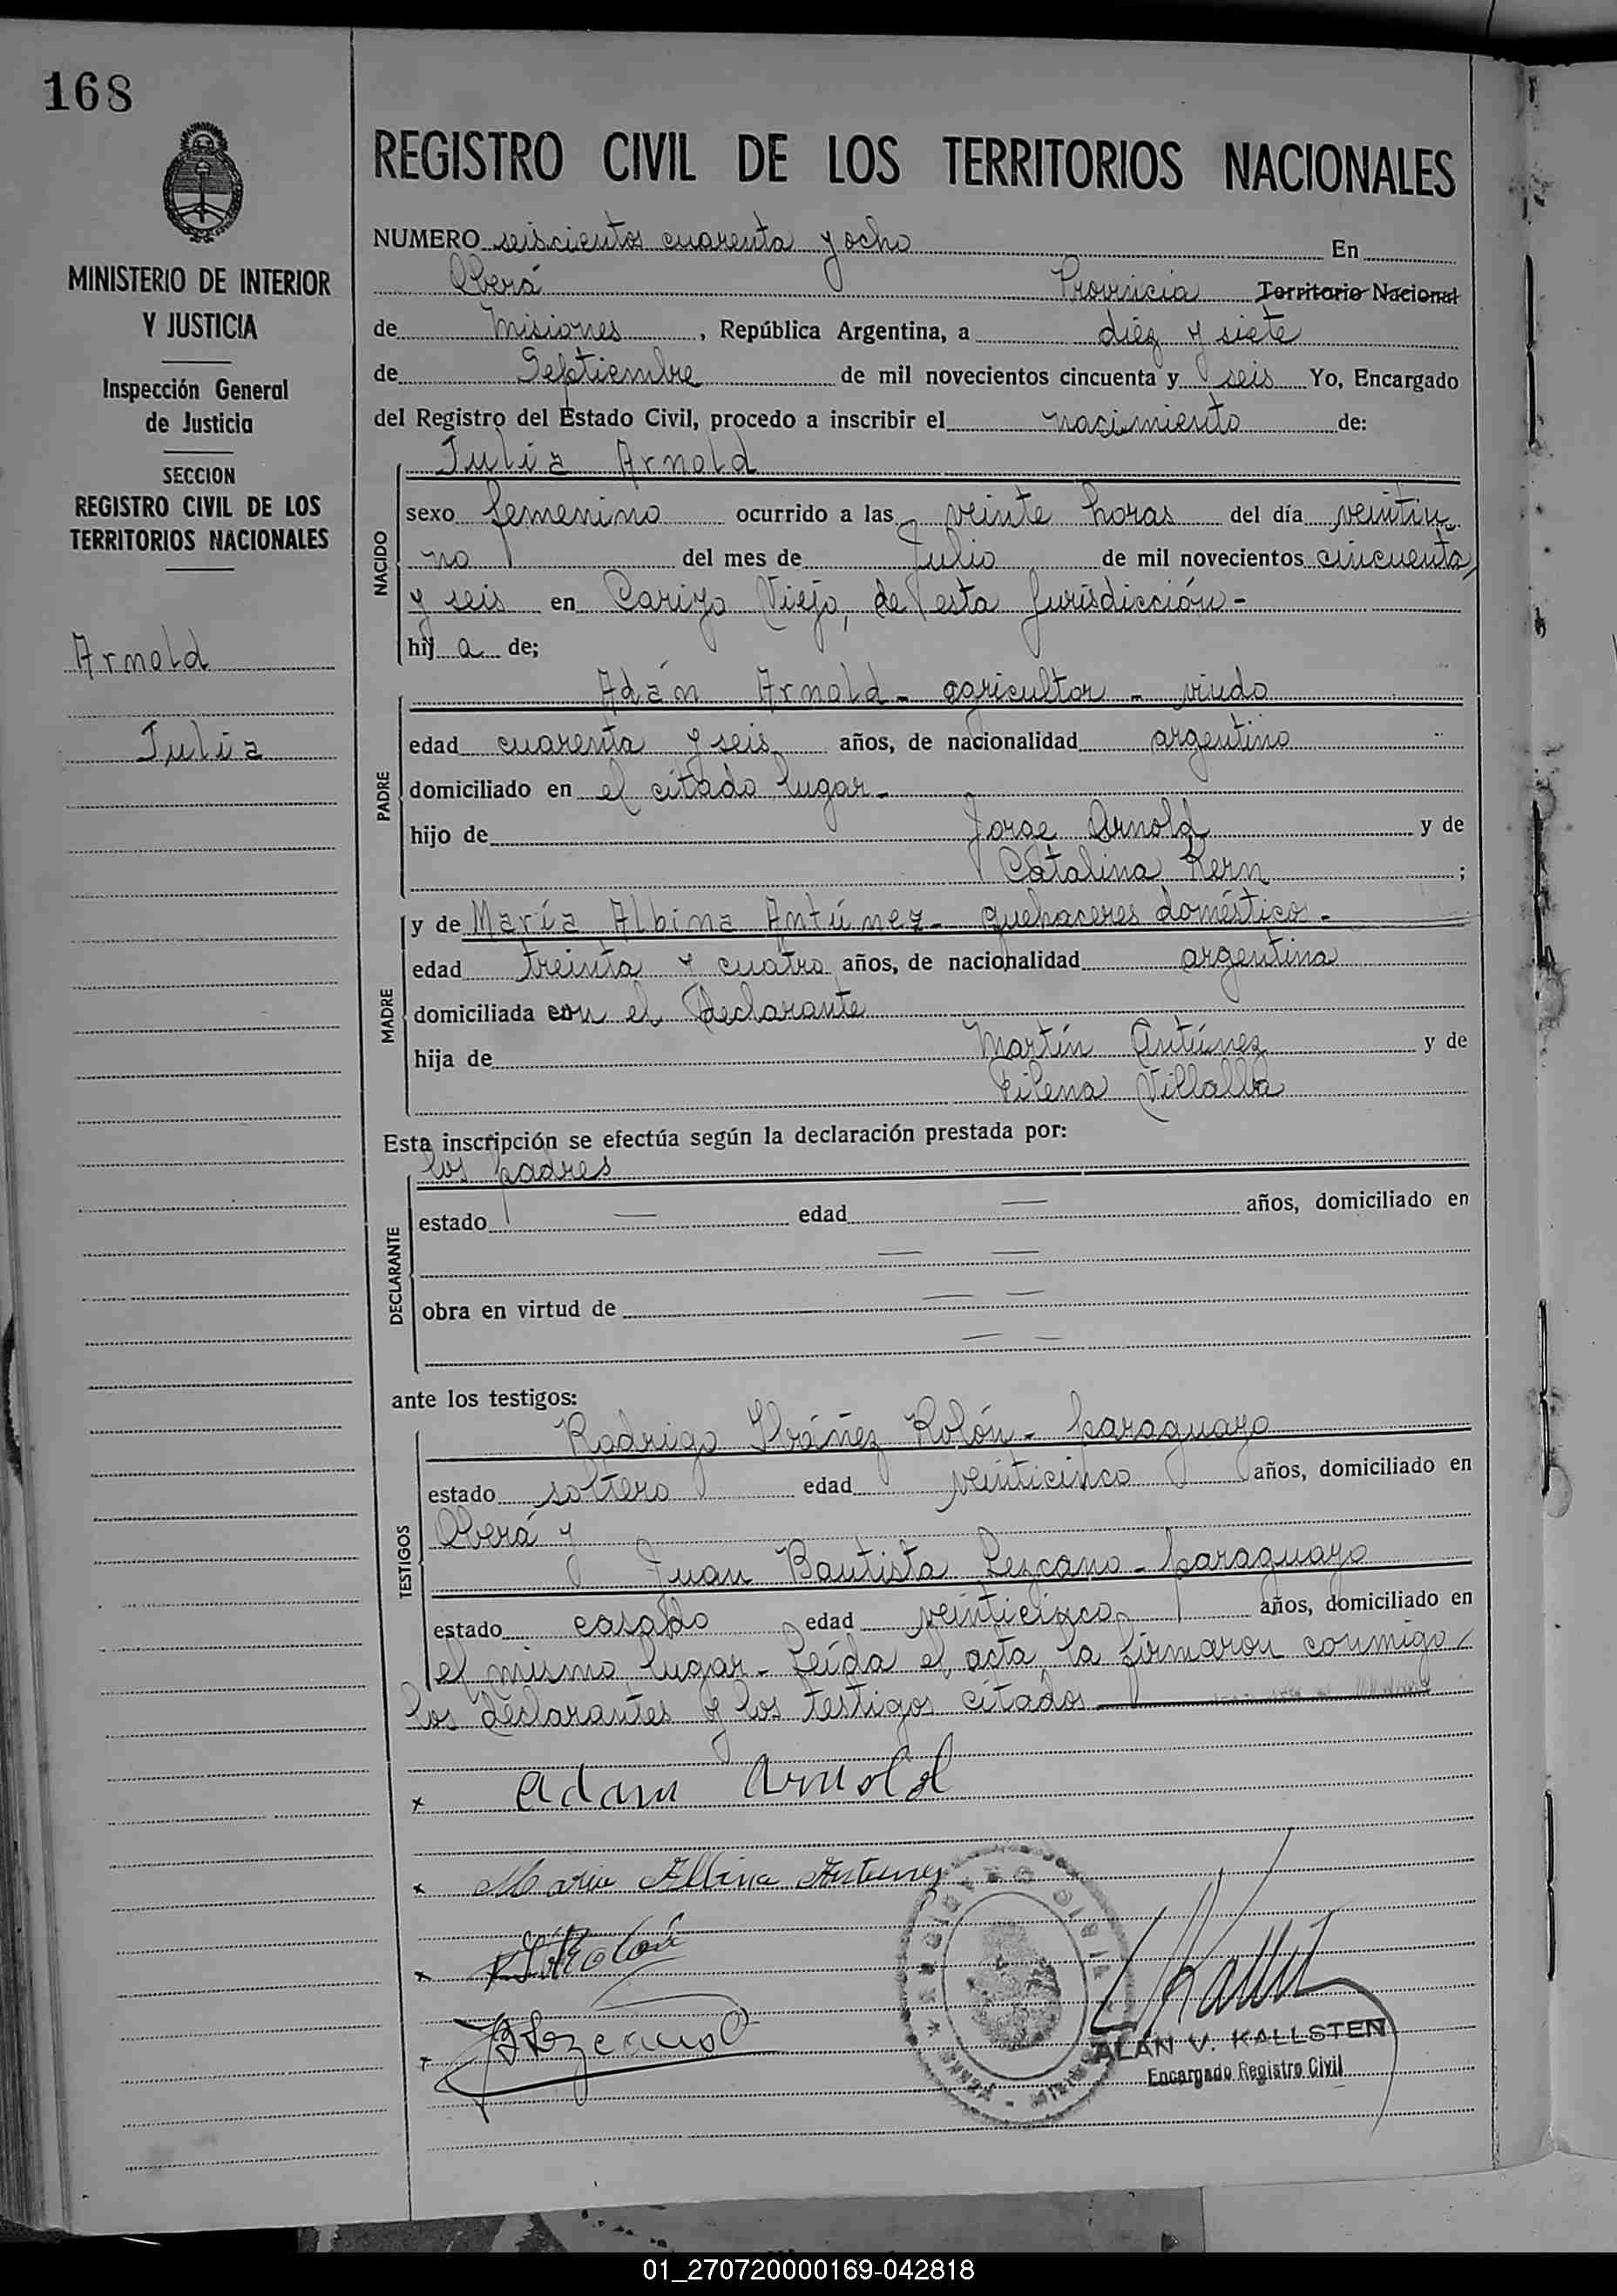 168
REGISTRO CIVIL DE LOS TERRITORIOS NACIONALES
MINISTERIO DE INTERIOR
Y JUSTICIA
Inspección General
de Justicia
SECCION
REGISTRO CIVIL DE LOS
TERRITORIOS NACIONALES
Arnold
Julia
NUMERO seiscientos cuarenta y ocho En
Oberá Provincia Territorio Nacional
de Misiones, República Argentina, a diez y siete
de Septiembre de mil novecientos cincuenta y seis Yo, Encargado
del Registro del Estado Civil, procedo a inscribir el nacimiento de:
Julia Arnold
NACIDO
sexo femenino ocurrido a las veinte horas del día veintiu
no del mes de Julio de mil novecientos cincuenta
y seis en Viejo, de esta Jurisdicción-
hij a de;
Adán Arnold - agricultor - viudo
PADRE
edad cuarenta y seis años, de nacionalidad argentino
domiciliado en el citado lugar-
hijo de Jorge Arnold y de
Catalina Kern ;
MADRE
y de María Albina Antúnez- quehaceres doméstico-
edad treinta y cuatro años, de nacionalidad argentina
domiciliada con el declarante
hija de Martín Antúnez y de
Villalba
Esta inscripción se efectúa según la declaración prestada por:
los padres
DECLARANTE
estado — edad — años, domiciliado en
— —
obra en virtud de — —
— —
ante los testigos:
TESTIGOS
Rodrigo Ibáñez Rolón- paraguayo
estado soltero edad veinticinco años, domiciliado en
Oberá y
Juan Bautista Lezcano- paraguayo
estado casado edad veinticinco años, domiciliado en
el mismo lugar- Leída el acta, la firmaron conmigo
los declarantes y los testigos citados
x Adam Arnold
x Maria Albina Antunez
ALAN V. KALLSTEN
Encargado Registro Civil
01_270720000169-042818